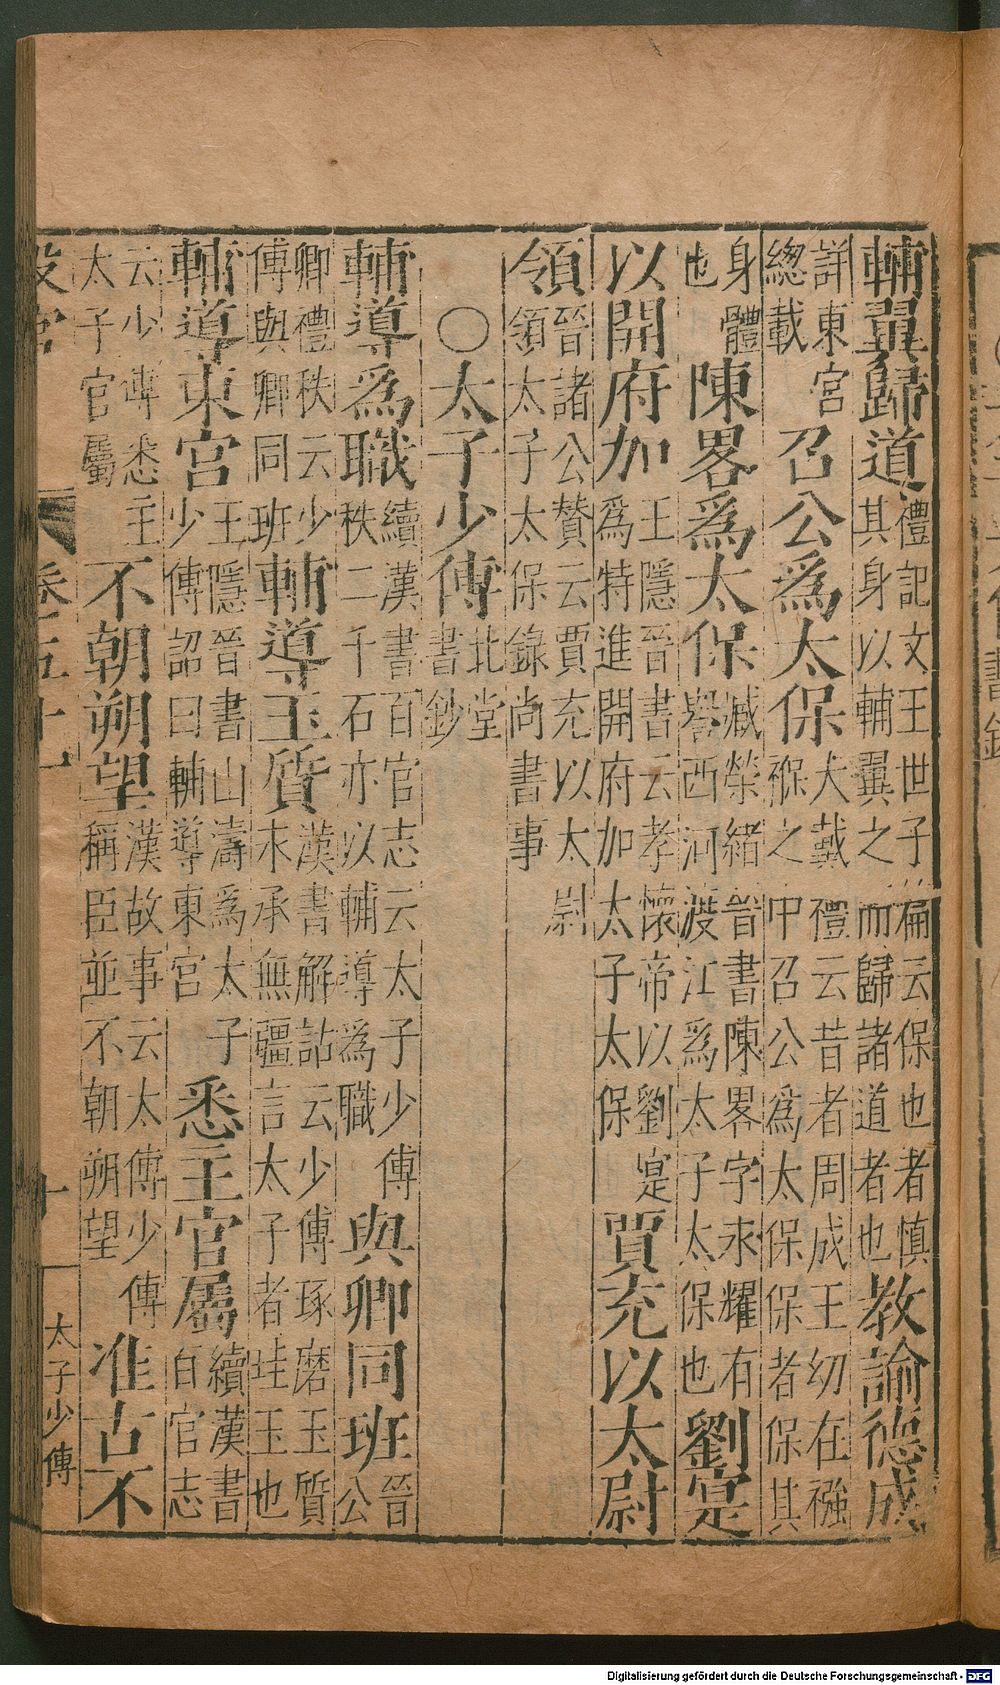 輔翼歸道禮記文王世子篇云保也者慎其身以輔翼之而歸諸道者也教諭德成
詳東宮總載召公爲太保大戴禮云昔者周成王幼在襁褓之中召公爲太保保者保其
身體也陳畧爲太保臧榮緒晉書陳畧字永耀有譽西河渡江爲太子太保也劉寔
以開府加王隱晉書云孝懷帝以劉寔爲特進開府加太子太保賈充以太尉
領晉諸公贊云賈充以太尉領太子太保錄尚書事
○太子少傅北堂書鈔
輔導爲職續漢書百官志云太子少傅秩二千石亦以輔導爲職與卿同班晉公
卿禮秩云少傅與卿同班輔導玉質漢書解詁云少傅琢磨玉質末承無疆言太子者珪玉也
輔導東宮王隱晉書山濤爲太子少傅詔曰輔導東宮悉主官屬續漢書百官志
云少傅悉主太子官屬不朝朔望漢故事云太傅少傅稱臣並不朝朔望准古不
設官 卷五十一 十 太子少傅
Digitalisierung gefördert durch die Deutsche Forschungsgemeinschaft - DFG